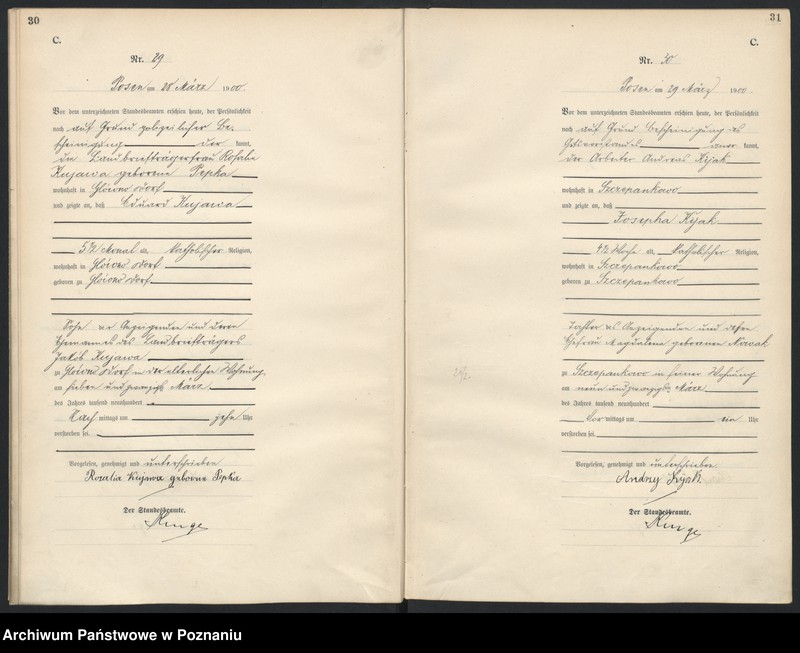 30
C.
Nr. 29
Posen am 28 März 1900.
Vor dem unterzeichneten Standesbeamten erschien heute, der Persönlichkeit
nach auf Grund polizeilicher Be-
scheinigung der kannt,
die Landbriefträgerfrau Rosalie
Kujawa geborene Pepka
wohnhaft in Glowno Dorf
und zeigte an, daß Eduard Kujawa
5½ Monat alt, katholischer Religion,
wohnhaft in Glowno Dorf
geboren zu Glowno Dorf
Sohn der Anzeigenden und deren
Ehemannes des Landbriefträgers
Jakob Kujawa
zu Glowno Dorf in der elterlichen Wohnung
am sieben und zwanzigsten März
des Jahres tausend neunhundert
Nach mittags um zehn Uhr
verstorben sei.
Vorgelesen, genehmigt und unterschrieben
Rozalia Kujawa geborene Pepka
Der Standesbeamte.
Runge
31
C.
Nr. 30
Posen am 29 März 1900.
Vor dem unterzeichneten Standesbeamten erschien heute, der Persönlichkeit
nach auf Grund Bescheinigung des
Distriktsamtes aner kannt,
der Arbeiter Andreas Kijak
wohnhaft in Szczepankowo
und zeigte an, daß
Josepha Kijak
4½ Woche alt, katholischer Religion,
wohnhaft in Szczepankowo
geboren zu Szczepankowo
Tochter des Anzeigenden und dessen
Ehefrau Magdalene geborenen Nowak
zu Szczepankowo in seiner Wohnung
am neun und zwanzigsten März
des Jahres tausend neunhundert
Vor mittags um ein Uhr
verstorben sei.
Vorgelesen, genehmigt und unterschrieben
Andrzej Kijak
Der Standesbeamte.
Runge
Archiwum Państwowe w Poznaniu